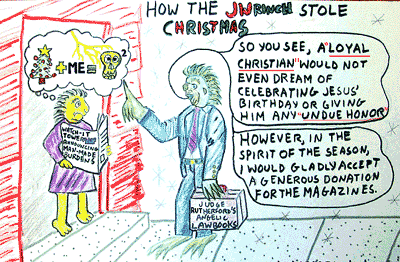 HOW THE JWRINCH STOLE
CHRISTMAS
+ME= 2
SO YOU SEE, A "LOYAL
CHRISTIAN" WOULD NOT
EVEN DREAM OF
CELEBRATING JESUS'
BIRTHDAY OR GIVING
HIM ANY "UNDUE HONOR"
HOWEVER, IN THE
SPIRIT OF THE SEASON,
I WOULD GLADLY ACCEPT
A GENEROUS DONATION
FOR THE MAGAZINES.
WATCH-IT
TOWER
ANNOUNCING
MAN-MADE
BURDENS
JUDGE
RUTHERFORD'S
ANGELIC
LAWBOOKS